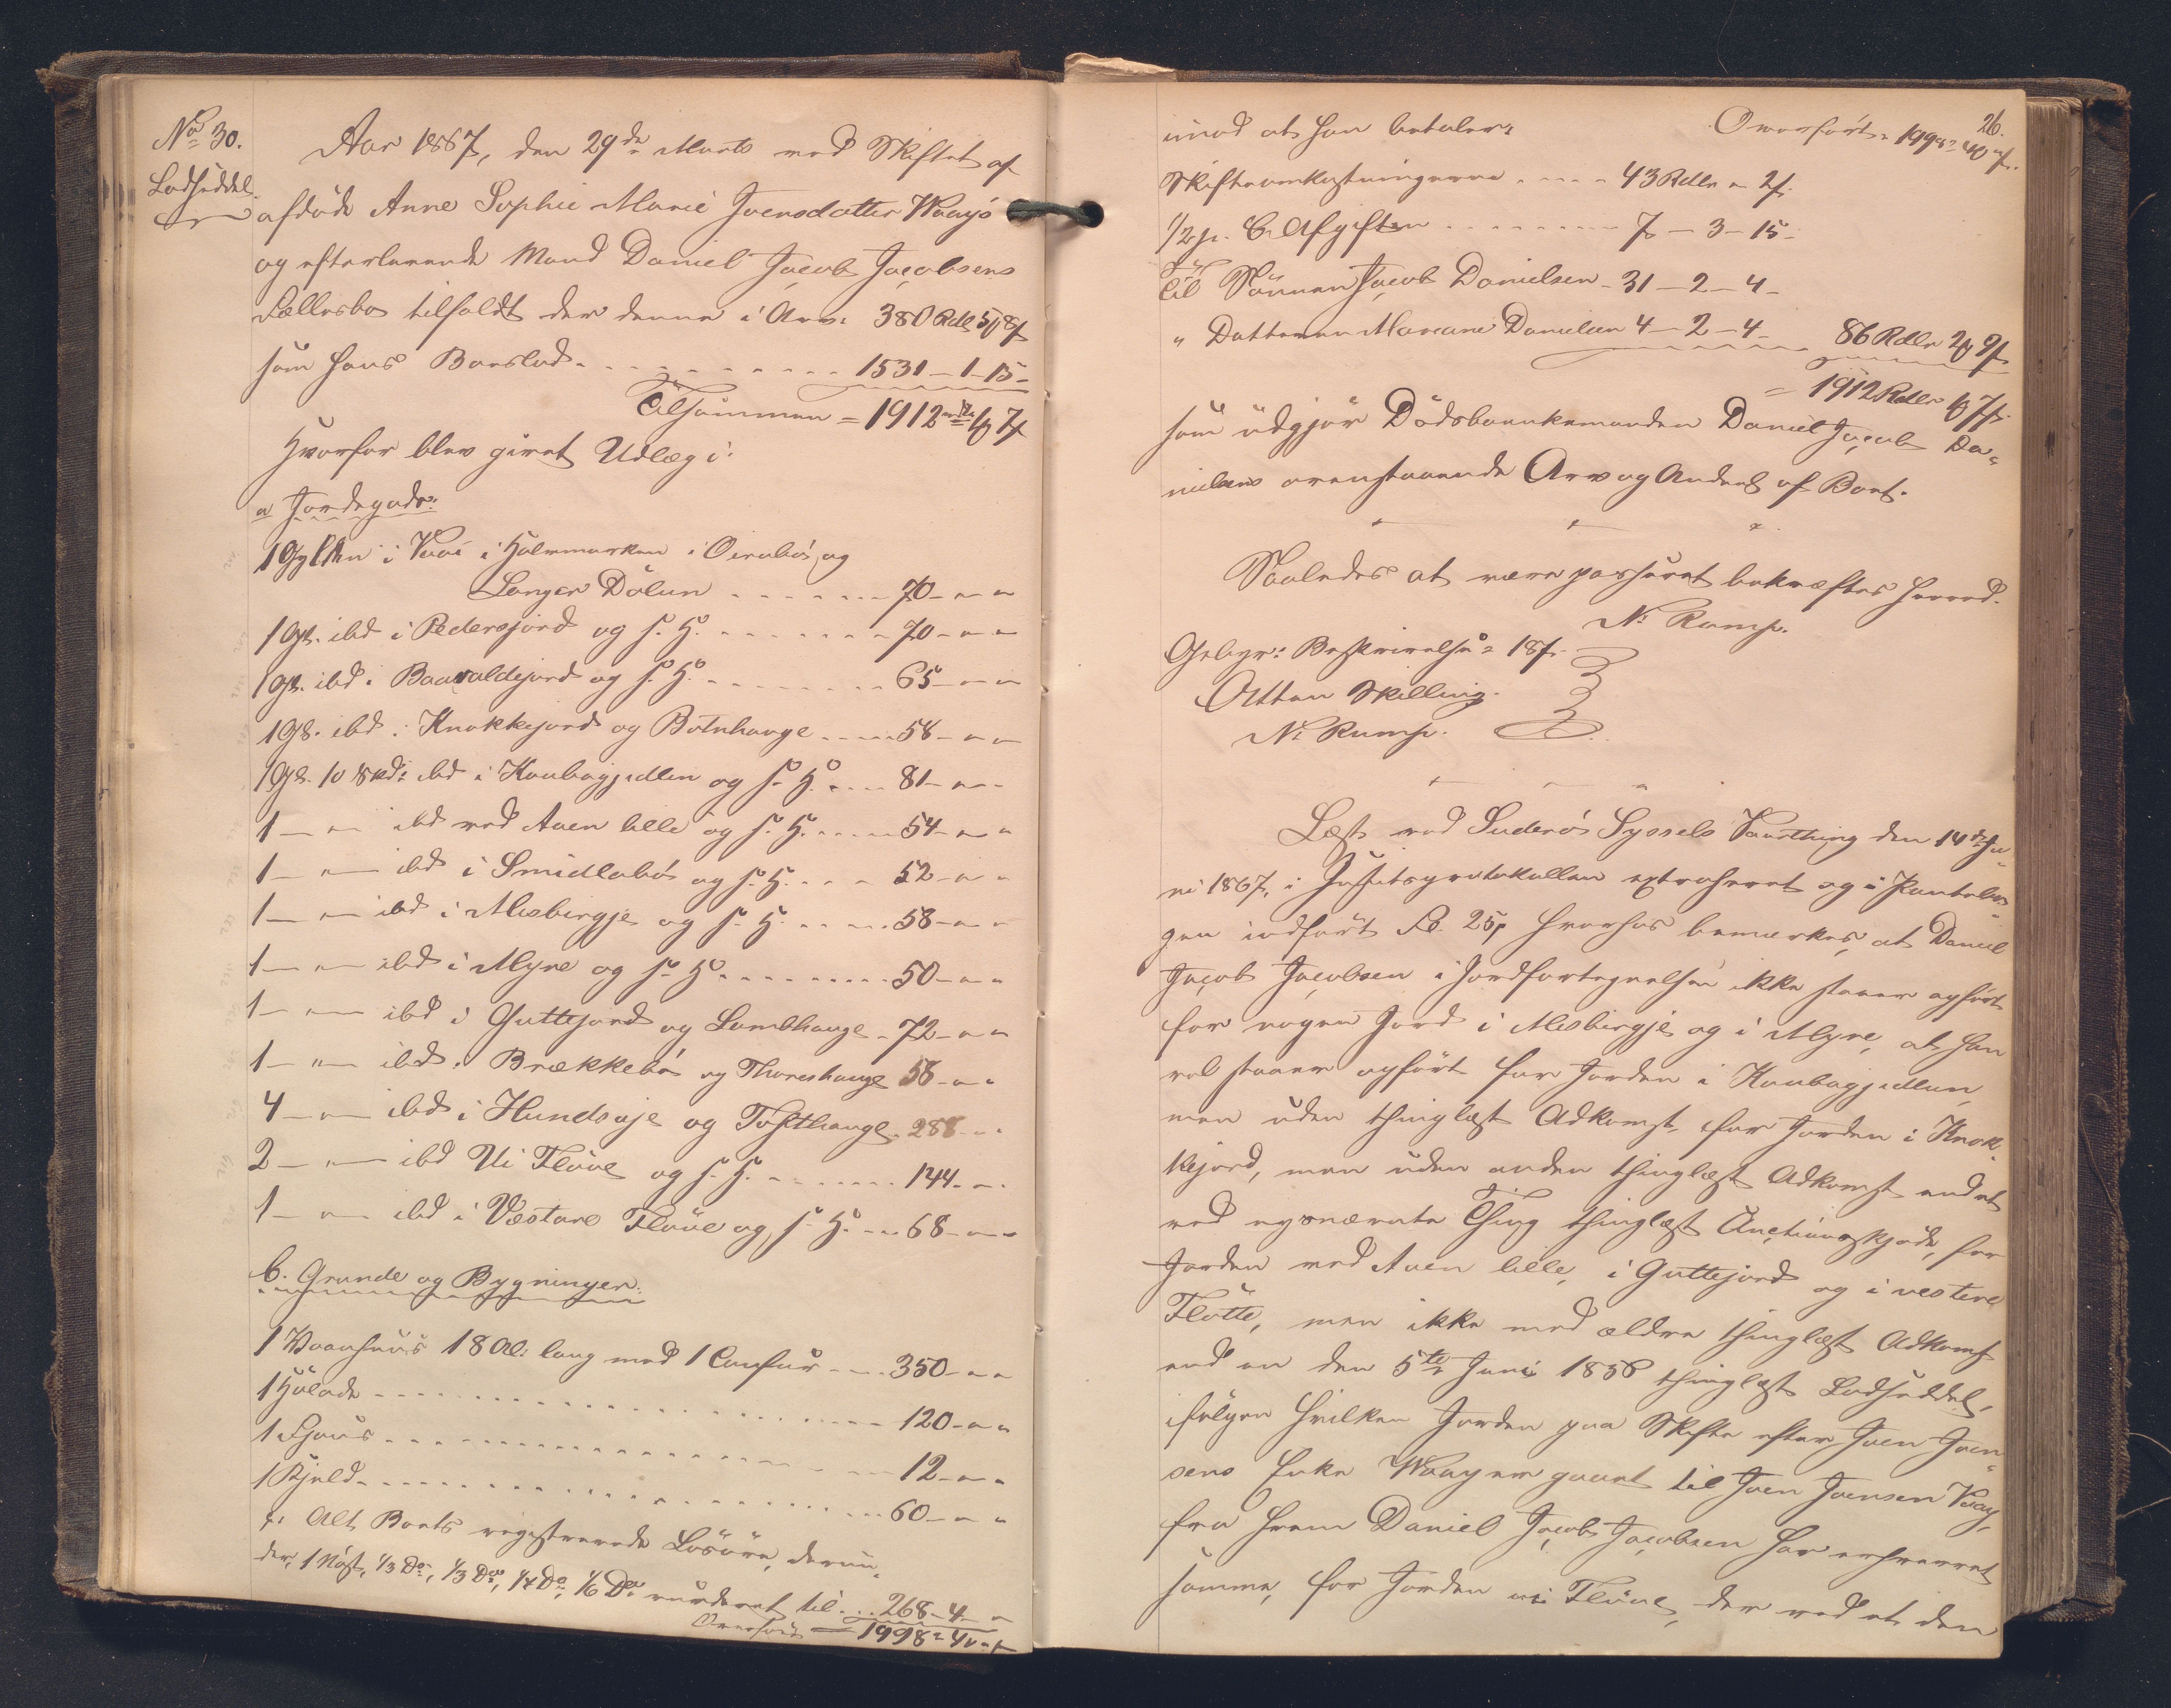 No 30.
Lodseddel.
Aar 1867, den 29de Marts ved Skiftet af
afdöde Anne Sophie Marie Joensdatter Waagö
og efterlevende Mand Daniel Jacob Jacobsens
Fællesbo tilfaldt der denne i Arv: 380 Rdl 5 ₥ 8 s
som hans Boeslod - - - 1531 - 1 - 15 -
Tilsammen = 1912 Rd 1 ₥ 7 s
Hvorfor blev givet Udlæg i:
a Jordegods:
1 Gylden i Vaai i Heimmarken i Öirabö, og
Langer Dölun - - - - - - 70 - " - "
1 Gl. ibd i Pedersjord og s. H. - - - - - - 70 - " - "
1 Gl. ibd i Baaraldejord og s. H. - - - - - - 65 - " - "
1 Gl. ibd i Knokkejord og Botnhauge - - - - 58 - " - "
1 Gl. 10 Skd: ibd i Kaubagjedlen og s. H. - - - 81 - " - "
1 - " - ibd ved Aaen lille og s. H. - - - - 54 - " - "
1 - " - ibd i Smidlabö og s. H. - - - 52 - " - "
1 - " - ibd i Misbirgje og s. H. - - - - 58 - " - "
1 - " - ibd i Myre og s. H. - - - - - - 50 - " - "
1 - " - ibd i Guttejord og Lambhauge - 72 - " - "
1 - " - ibd i Brækkebö og Thoreshauge 58 - " - "
4 - " - ibd i Hundsoje og Tofthauge - 288 - " - "
2 - " - ibd Ui Flöue og s. H. - - - - - - 144 - " - "
1 - " - ibd i Vestare Flöue og s. H. - - 68 - " - "
b. Grunde og Bygninger:
1 Vaanhuus 18 Al: lang med 1 - - - 350 - " - "
1 Hölade - - - - - - 120 - " - "
1 Fjous - - - - - - 12 - " - "
1 Kjeld - - - - - - 60 - " - "
c. Alt Boets registrerede Lösöre, derun-
der, 1 Nöst, 1/3 Do, 1/3 Do, 1/4 Do, 1/6 Do vurderet til - - 268 - 4 - "
Overført = 1998 " 4 ₥ " s
26.
Overført = 1998 " 4 ₥ " s.
imod at han betaler:
Skifteomkostningerne - - - - 43 Rdlr " 2 s.
1/2 p. C. Afgiften - - - - - - 7 - 3 - 15 -
Til Sönnen Jacob Danielsen - 31 - 2 - 4 -
" Datteren Mariane Danielsen 4 - 2 - 4 - 86 Rdlr 2 ₥ 9 s
= 1912 Rdlr 1 ₥ 7 s.
som udgjør Dödsboenkemanden Daniel Jacob Da-
nielsens ovenstaaende Arv og Andeel af Boet.
Saaledes at være passeret bekræftes herved.
N. Rump.
Gebyr: Beskrivelse = 18 s.
Atten Skilling.
N. Rump.
Læst ved Suderö Syssels Vaarthing den 14de Ju-
ni 1867, i Justitsprotokollen extraheret og i Pantebo-
gen indført Fo. 25, hvorhos bemærkes, at Daniel
Jacob Jacobsen i Jordfortegnelsen ikke staaer opført
for nogen Jord i Misbirgje og i Myre, at han
vel staaer opført for Jorden i Kaubagjedlun,
men uden thinglæst Adkomst, for Jorden i Knok-
kejord, men uden anden thinglæst Adkomst end et
ved nysnævnte Thing thinglæst Auctionsskjöde, for
Jorden ved Aaen lille, i Guttejord og i vestere
Flötte, men ikke med ældre thinglæst Adkomst
end en den 5te Juni 1858 thinglæst Lodseddel,
ifölgen hvilken Jorden paa Skifte efter Joen Joen-
sens Enke Waag er gaaet til Joen Joensen Vaag,
fra hvem Daniel Jacob Jacobsen har erhvervet
samme, for Jorden ui Flöue, der ved at den